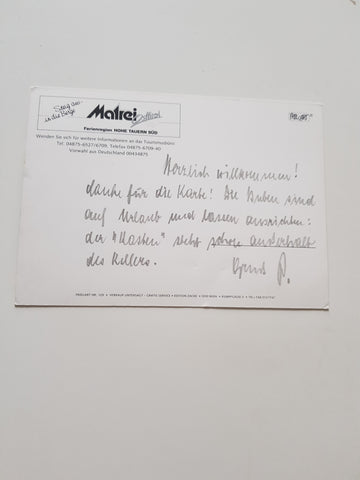 Steig ein
in die Berge
Matrei Osttirol
Ferienregion HOHE TAUERN SÜD
Wenden Sie sich für weitere Informationen an das Tourismusbüro
Tel. 04875-6527/6709, Telefax 04875-6709-40
Vorwahl aus Deutschland 00434875
Herzlich willkommen!
danke für die Karte! Die Buben sind
auf Urlaub und lassen ausrichten:
der "Kasten" steht schon außerhalb
des Kellers.
P.
VERKAUF UNTERSAGT - GRATIS SERVICE - EDITION